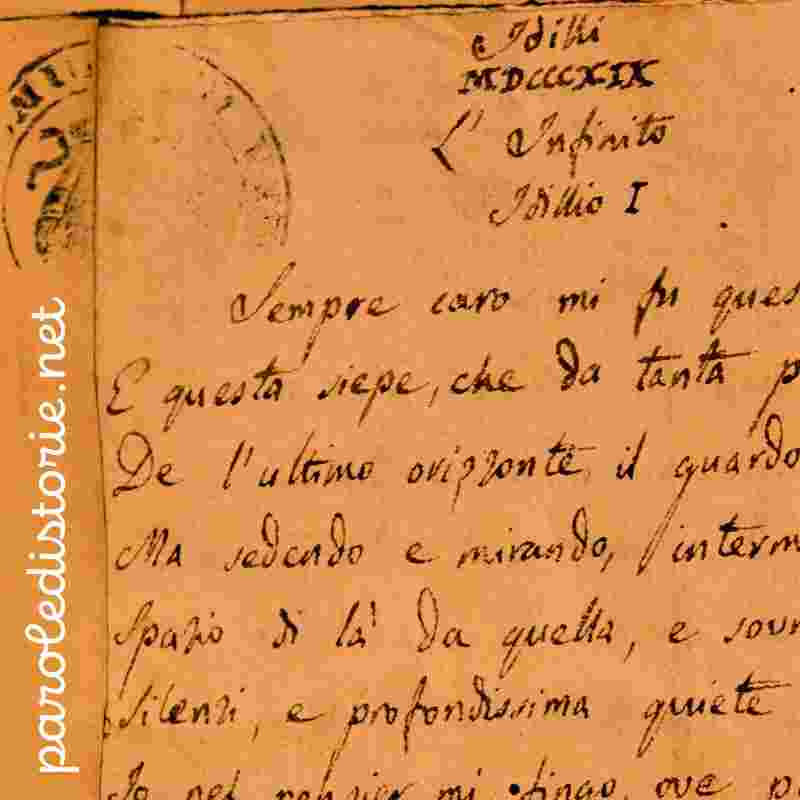 Idilli
MDCCCXIX
L'Infinito
Idillio I
Sempre caro mi fu ques
E questa siepe, che da tanta p
De l'ultimo orizzonte il guardo
Ma sedendo e mirando, interm
Spazio di là da quella, e sovr
Silenzi, e profondissima quiete
Io nel pensier mi fingo, ove p
paroledistorie.net